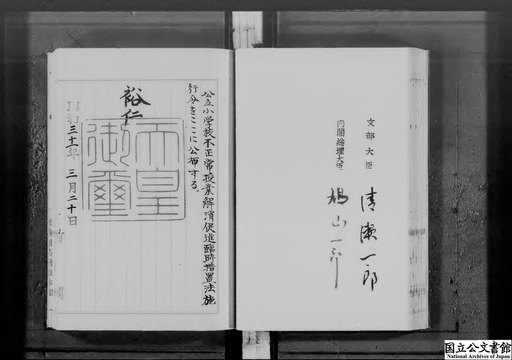 文部大臣 清瀬一郎
内閣総理大臣 鳩山一郎
公立小学校不正常授業解消促進臨時措置法施
行令をここに公布する。
裕仁
天皇
御璽
昭和三十一年 三月二十日
国立公文書館
National Archives of Japan